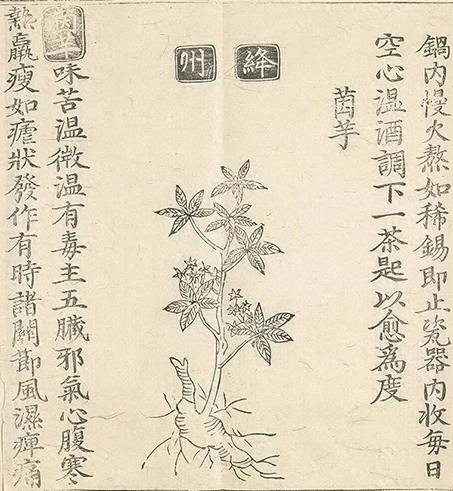 鍋內慢火熬如稀錫即止瓷器內收每日
空心温酒調下一茶匙以愈爲度
茵芋
絳州
茵芋味苦温微温有毒主五臟邪氣心腹寒
熱羸瘦如瘧狀發作有時諸關節風濕痺痛